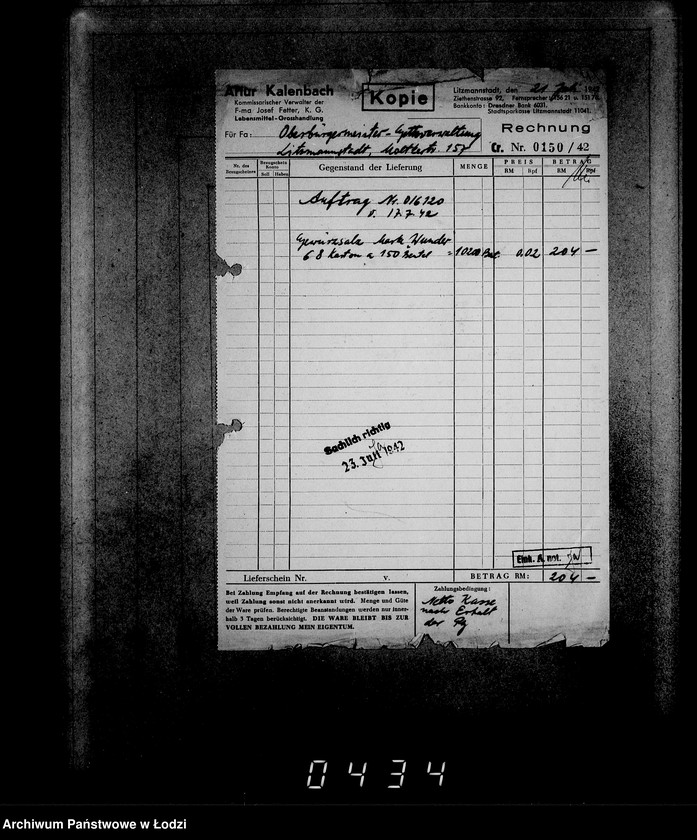 Artur Kalenbach
Kommissarischer Verwalter der
F-ma Josef Fetter, K. G.
Lebensmittel-Grosshandlung
Kopie
Litzmannstadt, den 21. Juli 1942
Ziethenstrasse 92, Fernsprecher
Bankkonto: Dresdner Bank 6031,
Stadtsparkasse Litzmannstadt 11041.
Rechnung
Für Fa: Oberbürgermeister - Gettoverwaltung
Litzmannstadt, Moltkestr. 157
Cr. Nr. 0150 / 42
Nr. des Bezugscheines
Bezugschein Konto
Soll Haben
Gegenstand der Lieferung
MENGE
PREIS
RM Rpf
BETRAG
RM Rpf
Auftrag Nr. 016120
v. 17.7.42
Gewürzsalz Mark. Wunder
68 Karton a 150 Beutel = 10200 Beut. 0.02 204 —
Sachlich richtig
23. Juli 1942
Eink. A. not.
Lieferschein Nr. v. BETRAG RM: 204 —
Bei Zahlung Empfang auf der Rechnung bestätigen lassen,
weil Zahlung sonst nicht anerkannt wird. Menge und Güte
der Ware prüfen. Berechtigte Beanstandungen werden nur inner-
halb 3 Tagen berücksichtigt. DIE WARE BLEIBT BIS ZUR
VOLLEN BEZAHLUNG MEIN EIGENTUM.
Zahlungsbedingung:
Netto Kasse
nach Erhalt
der Rg
0434
Archiwum Państwowe w Łodzi